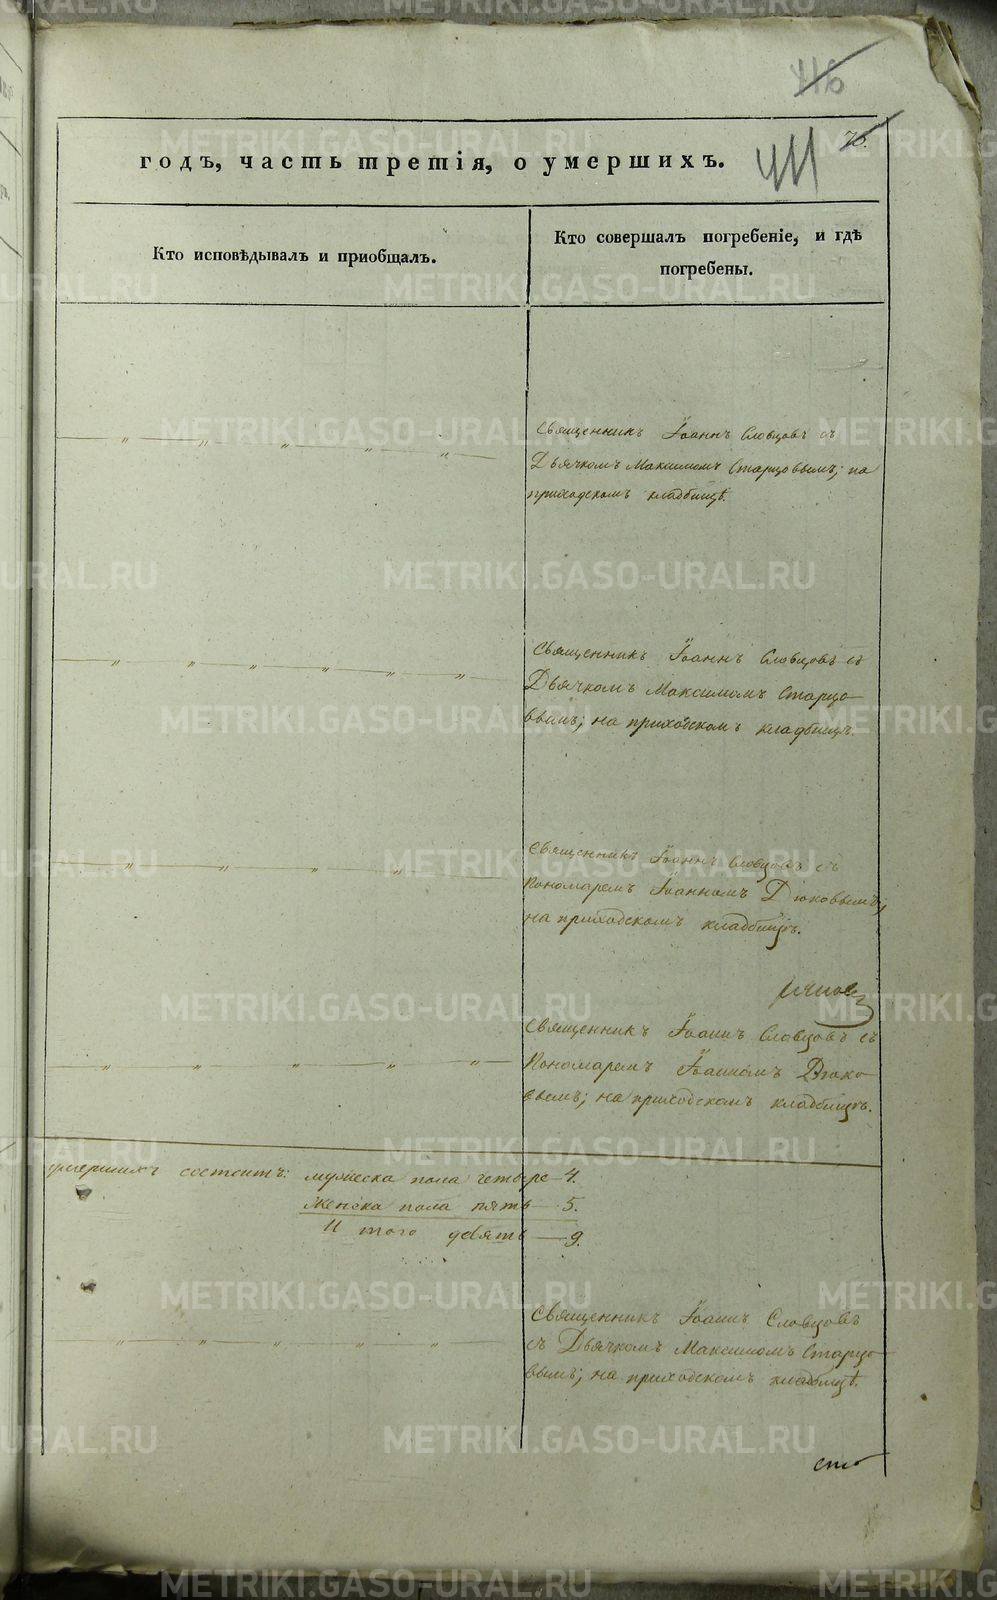 416
76.
411
годъ, часть третія, о умершихъ.
Кто исповѣдывалъ и пріобщалъ.
Кто совершалъ погребеніе, и гдѣ
погребены.
Священникъ Іоаннъ Словцовъ съ
Дьячкомъ Максимомъ Старцовымъ; на
приходскомъ кладбищѣ.
Священникъ Іоаннъ Словцовъ съ
Дьячкомъ Максимомъ Старцо-
вымъ; на приходскомъ кладбищѣ.
Священникъ Іоаннъ Словцовъ съ
Пономаремъ Іоанномъ Дюковымъ;
на приходскомъ кладбищѣ.
Священникъ Іоаннъ Словцовъ съ
Пономаремъ Іоанномъ Дюко-
вымъ; на приходскомъ кладбищѣ.
умершихъ состоитъ: мужеска пола четыре—4.
Женска пола пять—5.
И того девять—9.
Священникъ Іоаннъ Словцовъ
съ Дьячкомъ Максимомъ Старцо-
вымъ; на приходскомъ кладбищѣ.
METRIKI.GASO-URAL.RU